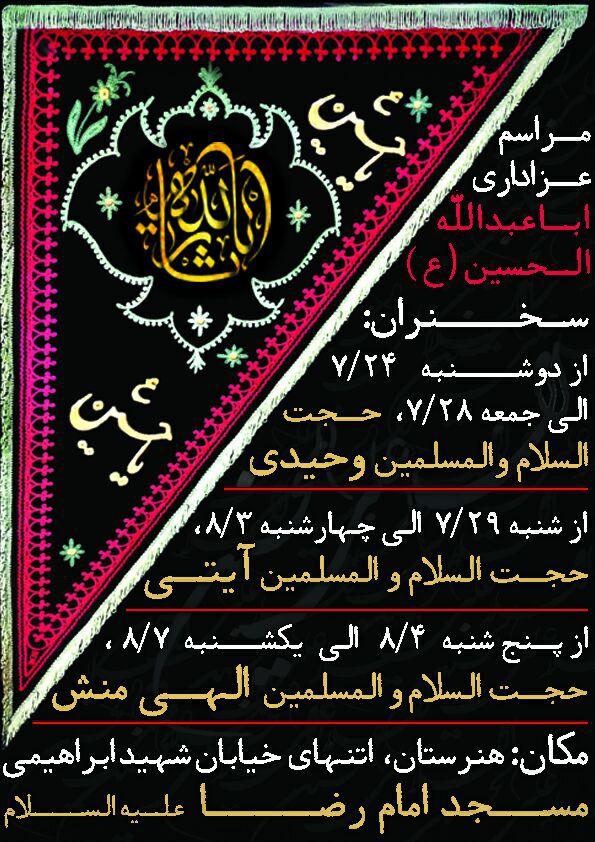 یا حسین
یا ثارالله
یا حسین
مراسم
عزاداری
اباعبدالله
الحسین (ع)
سخنران:
از دوشنبه ۷/۲۴
الی جمعه ۷/۲۸، حجت
السلام والمسلمین وحیدی
از شنبه ۷/۲۹ الی چهارشنبه ۸/۳،
حجت السلام و المسلمین آیتی
از پنج شنبه ۸/۴ الی یکشنبه ۸/۷،
حجت السلام و المسلمین الهی منش
مکان: هنرستان، انتهای خیابان شهید ابراهیمی
مسجد امام رضا علیه السلام